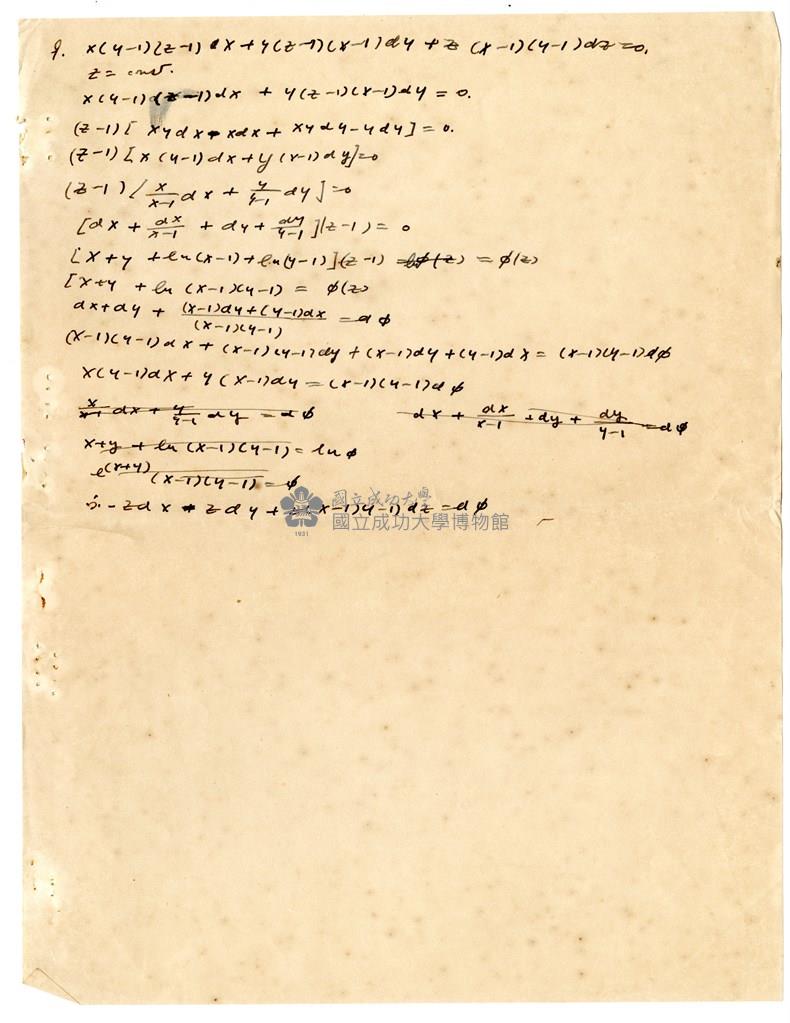 9. x(y-1)(z-1)dx+y(z-1)(x-1)dy+z(x-1)(y-1)dz=0.
z=const.
x(y-1)(z-1)dx + y(z-1)(x-1)dy=0.
(z-1)[xydx-xdx+xydy-ydy]=0.
(z-1)[x(y-1)dx+y(x-1)dy]=0
(z-1)[x/(x-1) dx + y/(y-1) dy]=0
[dx + dx/(x-1) + dy + dy/(y-1)](z-1)=0
[x+y+ln(x-1)+ln(y-1)](z-1) = φ(z)
[x+y+ln(x-1)(y-1) = φ(z)
dx+dy+ ((x-1)dy+(y-1)dx)/((x-1)(y-1)) =dφ
(x-1)(y-1)dx+(x-1)(y-1)dy+(x-1)dy+(y-1)dx=(x-1)(y-1)dφ
x(y-1)dx+y(x-1)dy=(x-1)(y-1)dφ
x/(x-1) dx+ y/(y-1) dy =dφ dx+ dx/(x-1) +dy+ dy/(y-1) =dφ
x+y+ln(x-1)(y-1)=lnφ
e^(x+y) (x-1)(y-1)=φ
∴ -zdx - zdy+z(x-1)(y-1)dz=dφ
國立成功大學
國立成功大學博物館
1931